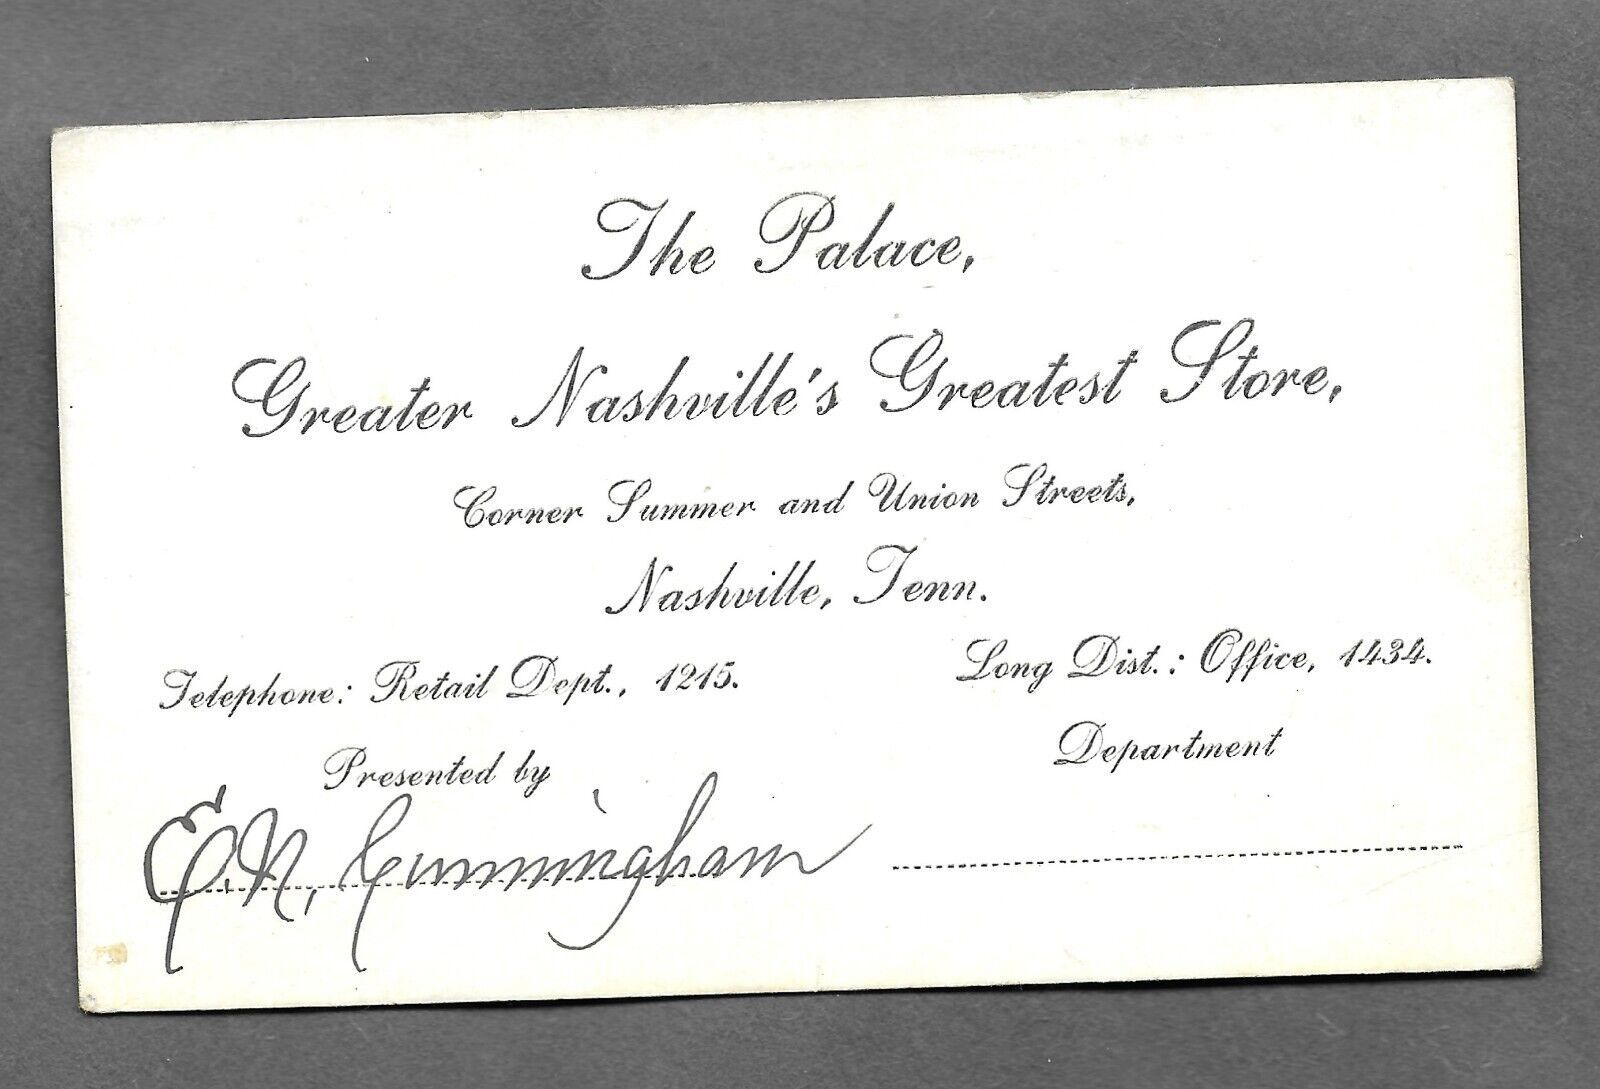 The Palace,
Greater Nashville's Greatest Store,
Corner Summer and Union Streets,
Nashville, Tenn.
Telephone: Retail Dept., 1215. Long Dist.: Office, 1434.
Presented by Department
E. N. Cunningham